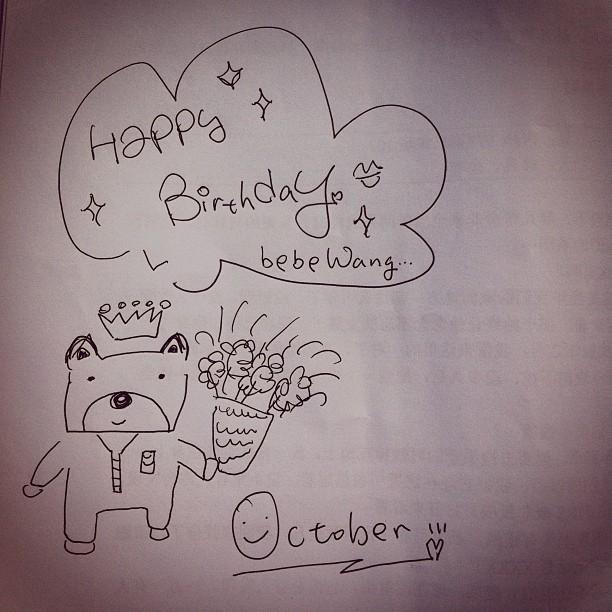 Happy
Birthday.
bebe Wang...
October !!!